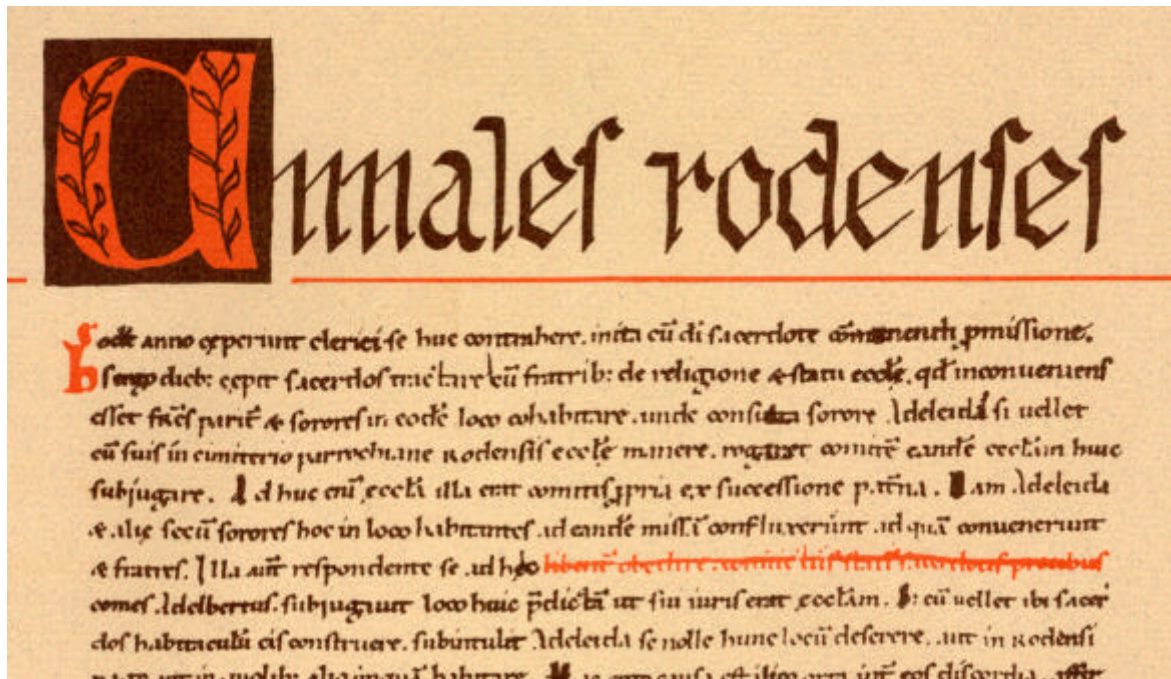 Annales rodenses
eodē anno ceperunt clerici se huc contrahere. inita cū di sacerdote pmissione.
dieb: cepit sacerdos tractare cū fratrib: de religione & statu eccłe. qd inconueniens
esset frēs parit̄ & sorores in eodē loco cohabitare. unde consulta sorore Adeleida si uellet
cū suis in cimiterio parrochiane Rodensis eccłe manere. rogaret comitē eandē eccłam huic
subjugare. Ad huc eni eccła illa erat comitis ppria ex successione pat̄na. Nam Adeleida
& alie secū sorores hoc in loco habitantes ad eandē missā confluxerunt ad quā conuenerunt
& fratres. Illa aut respondente se ad hoc libent̄ obedire. comite
comes Adelbertus. subjugauit loco huic p̄dictā ut sui iuris erat eccłam. cū uellet ibi sacer
dos habitaculū eis construere. subintulit Adeleida se nolle hunc locū deserere. aut in Rodensi
habitare. eos discordia